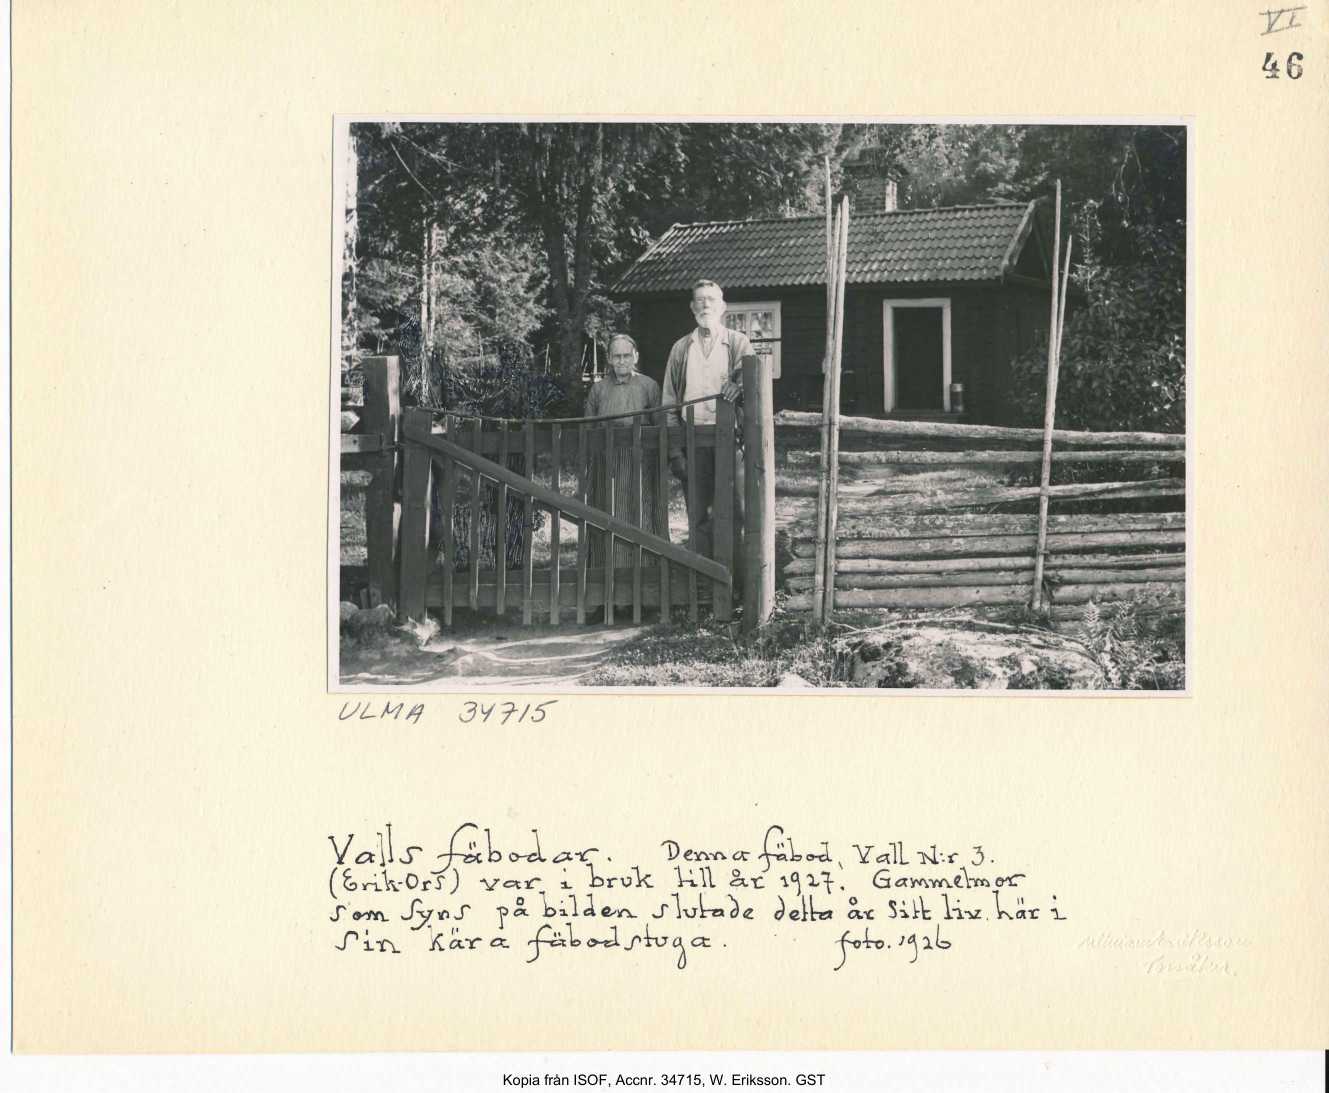 VI
46
ULMA 34715
Valls fäbodar. Denna fäbod, Vall N:r 3.
(Erik-Ors) var i bruk till år 1927. Gammelmor
som syns på bilden slutade detta år sitt liv här i
sin kära fäbodstuga. foto. 1926
Eriksson
Insåker.
Kopia från ISOF, Accnr. 34715, W. Eriksson. GST